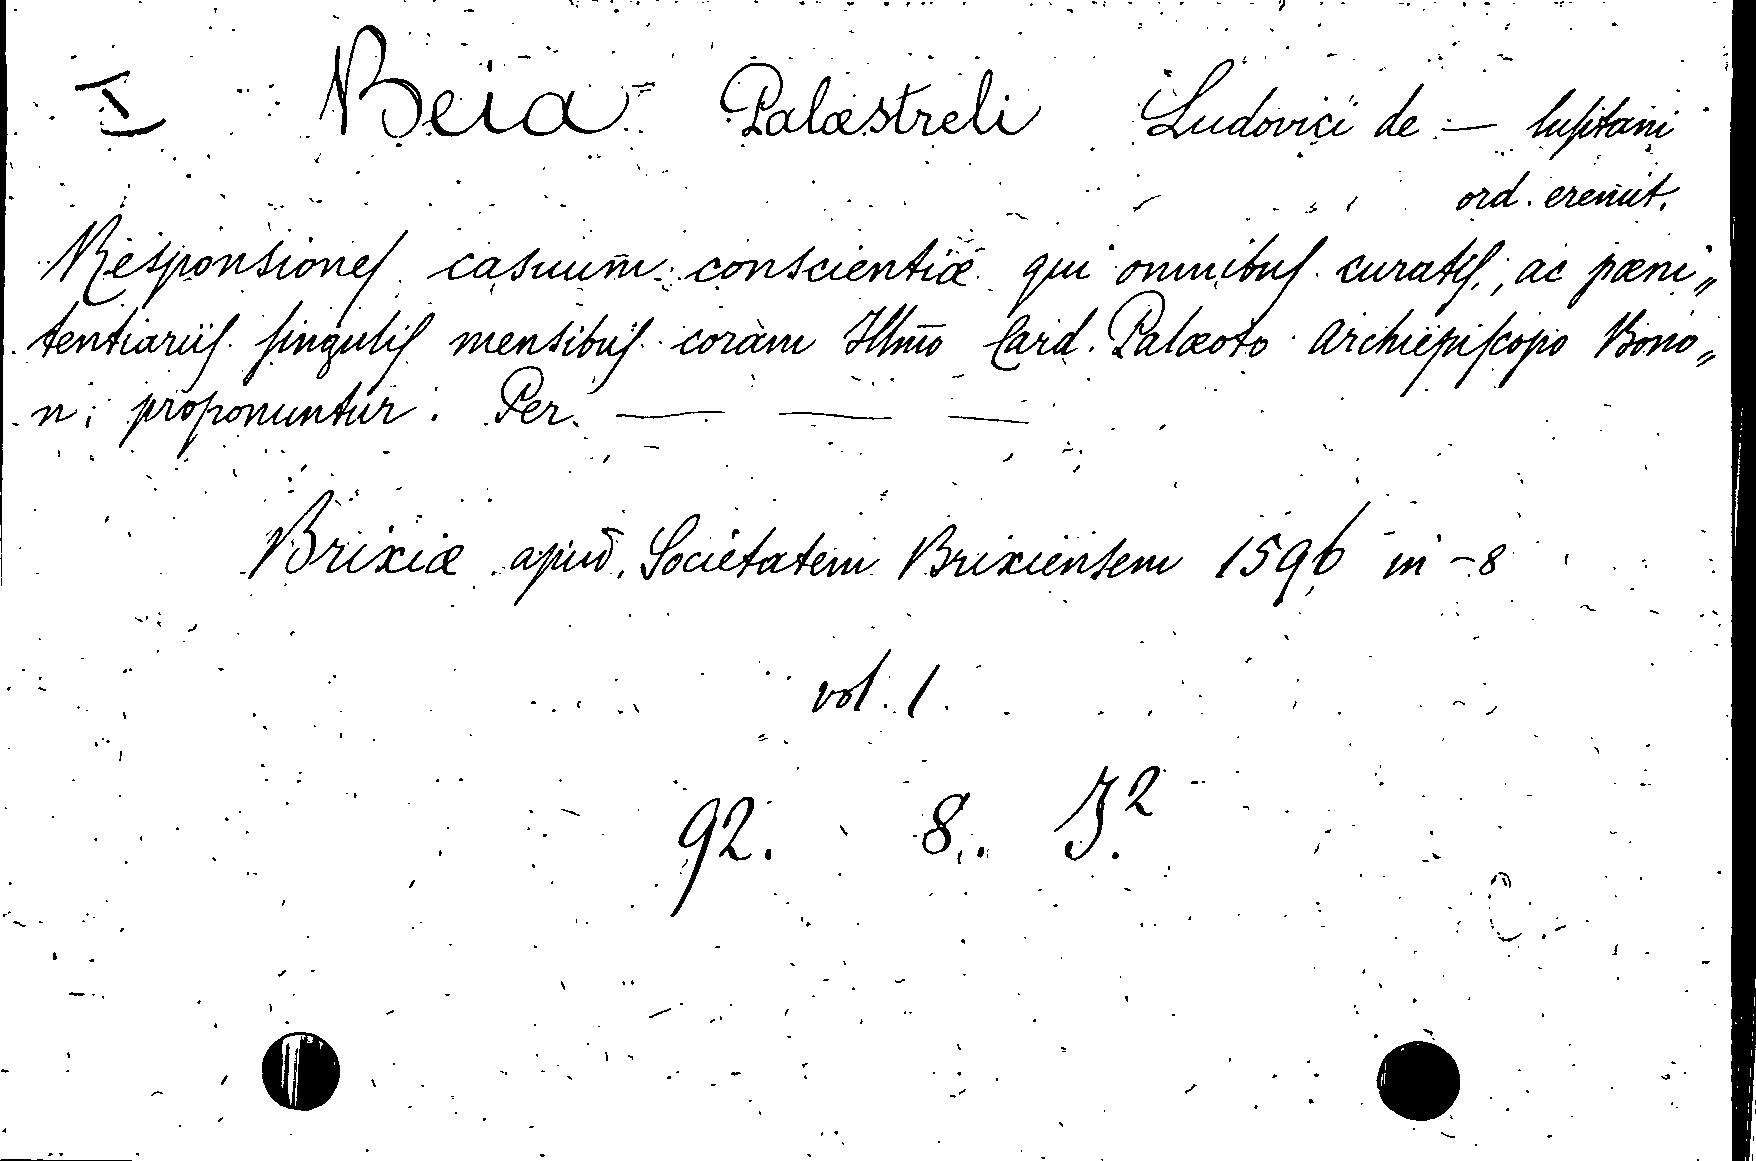 I Beia Palæstreli Ludovici de — lusitani
ord. eremit.
Responsiones casuum conscientiæ qui omnibus curatis, ac pæni„
tentiariis singulis mensibus coràm Illmo Card. Palæoto Archiepiscopo Bono„
n: proponuntur. Per. — — —
Brixiæ apud Societatem Brixiensem 1596 in -8
vol. 1.
92. 8.
C.